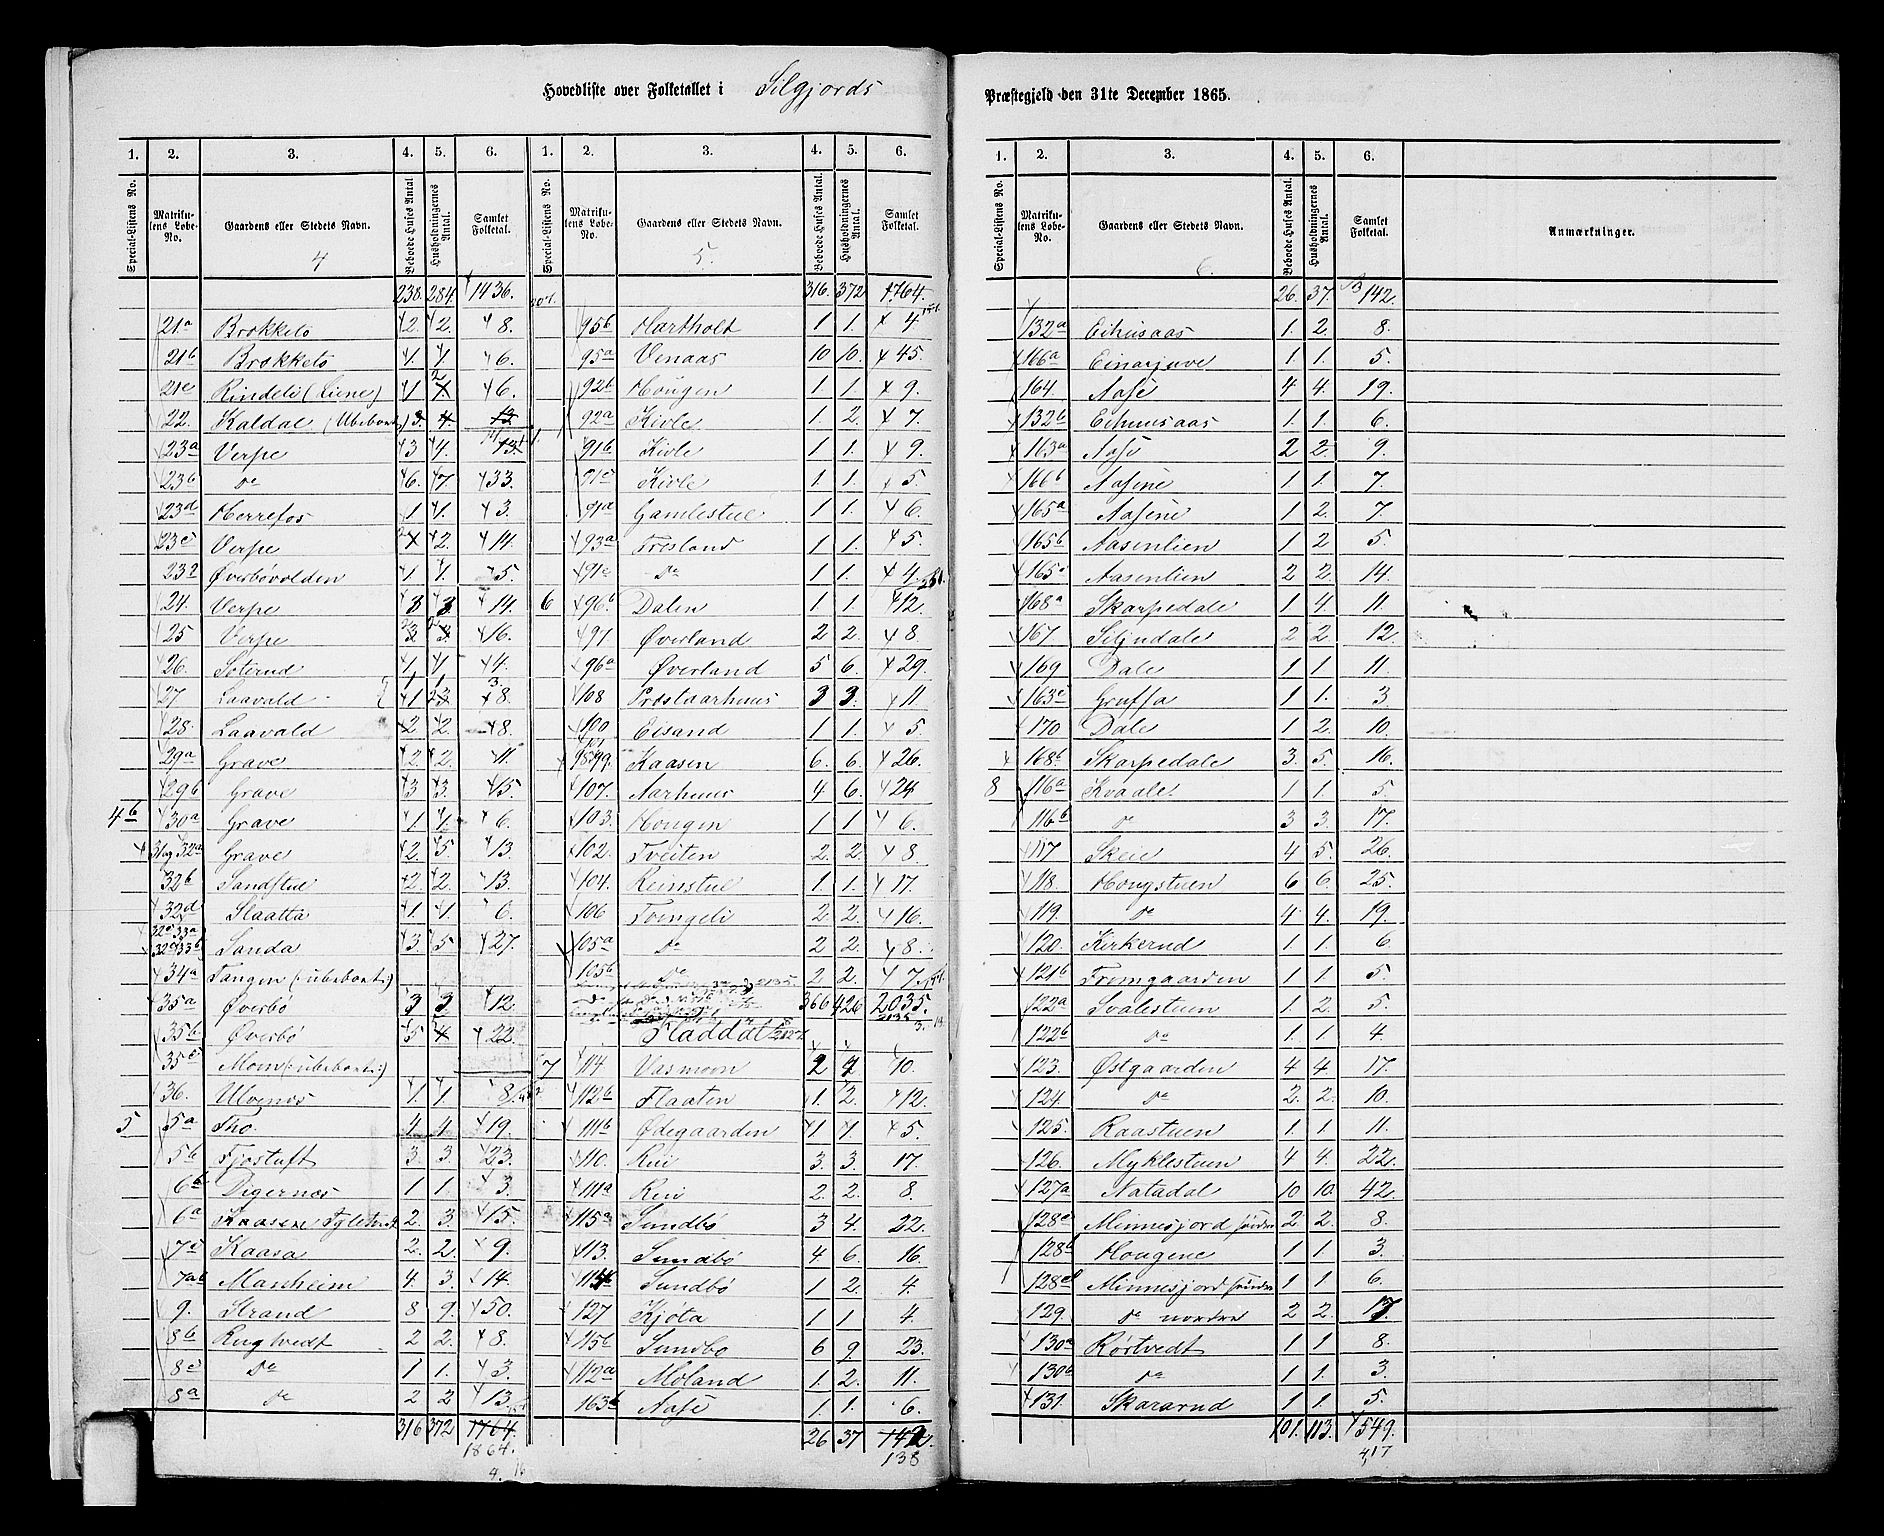 Hovedliste over Folketallet i Silgjords Præstegjeld den 31te December 1865.
1. 2. 3. 4. 5. 6. 1. 2. 3. 4. 5. 6.
Special-Listens No. Matrikulens Løbe-No. Gaardens eller Stedets Navn. Beboede Huses Antal. Husholdningernes Antal. Samlet Folketal. Special-Listens No. Matrikulens Løbe-No. Gaardens eller Stedets Navn. Beboede Huses Antal. Husholdningernes Antal. Samlet Folketal.
4 5.
238. 284. 1436. 316. 372 1764.
21a Brokkelö 2. 2. 8. 95b Hartholt 1 1. 4
21b Brokkelö 1. 1. 6. 95a Venaas 10 10. 45.
21c Rindeli (Liene) 1 2 6. 92b Hougen 1 1. 9.
22. Kaldal (Ubeboet) 3. 4. 13. 92a Kivle 1. 2. 7.
23a Verpe 3 4. 13. 91b Kivle 1 1. 9
23b do 6. 7. 33. 91c Kivle 1. 1. 5
23d Herrefos 1 1. 3. 91a Gamlestul 1 1. 6
23c Verpe 2 2. 14. 93a Fresland 1 1. 5.
Øverbövolden 1 1. 5. 91e do 1 1. 4.
24. Verpe 3 3. 14. 6 96b Dalen 1 1. 12.
25 Verpe 2 2 16. 97 Øverland 2 2. 8
26. Soterud 1. 1 4. 96a Øverland 5 6. 29.
27 Laavald 1 8. 108 Prestaarhuus 3 3. 11
28. Laavald 2 2. 8. 100 Eisand 1 1. 5
29a Grave 2. 2. 11. 99. Kaasen 6. 6. 26.
29b Grave 3 3. 15. 107. Aarhuus 4 6. 24
4b 30a Grave 1. 1. 6. 103. Hougen 1 1 6.
31 og 32a Grave 2. 5. 13. 102. Tveiten 2. 2. 8
32b Sandstul 2. 2. 13. 104. Reinstul 1. 1. 17.
32d Slaatta 1. 1. 6. 106 Tvingeli 2 2. 16.
Sanda 3 5 27. 105a do 2 2. 8.
34a Tangen (: ubeboet :) 105b do 2 2. 7
35a Øverbö 3 3. 12. 366 426 2035.
35b Øverbö 5 22. Fladdal
35c Moen (: ubeboet :) 7 114 Vasmoen 2 2 10.
36. Ulvenes 1. 1. 8 112b Flaaten 1. 2. 12.
5 5a Tho. 4 4. 19. 111b Ødegaarden 1 1. 5.
5b Fjostuft 3. 3. 23. 110. Rui 3. 3. 17.
6b Digernes 1 1. 3. 111a Rui 2. 2. 8.
6a Kaasen 2. 3. 15. 115a Sundbö 3 4. 22.
7c Kaasa 2. 2. 9. 113. Sundbö 4 6. 16
7ab Manheim 4. 3. 14. Sundbö 1 2. 4.
9. Strand 8 9. 50. 127 Kjöta 1 1 4.
8b Rugtvedt 2 2. 8. 115c Sundbö 6 9 23.
8c do 1 1. 3. 112a Moland 1. 2. 11.
8a do 2 2 13. 163b Aase 1. 1. 6
316 372 1764. 26 37 142.
1864. 138
1. 2. 3. 4. 5. 6.
Special-Listens No. Matrikulens Løbe-No. Gaardens eller Stedets Navn. Beboede Huses Antal. Husholdningernes Antal. Samlet Folketal. Anmærkninger.
6.
26. 37. 142.
132a Eihusaas 1. 2. 8.
166a Einarjuve 1. 1. 5.
164. Aase 4 4. 19.
132b Eihuusaas 1. 1. 6.
163a Aase 2 2. 9.
166b Aasene 1 1. 7.
165a Aasene 1 2. 7.
165b Aasenlien 1. 2 5.
165c Aasenlien 2 2. 14.
168a Skarpedale 1 4. 11.
167. Siljudale 2 2. 12.
169 Dale 1 1. 11.
163c Gruffa 1 1. 3
170 Dale 1 2. 10.
168b Skarpedale 3. 5. 16.
8 116a Kvaale 1 1. 5.
116b do 3 3. 17.
117 Skeie 4 5. 26.
118. Hougstuen 6 6. 25.
119. do 4 4. 19.
120. Kirkerud 1 1. 6
121b Fromgaarden 1 1. 5.
122a Svalestuen 1. 2. 5
122b do 1 1. 4
123. Østgaarden 4 4. 17.
124 do 2. 2. 10.
125. Raastuen 1 1. 11.
126. Myklestuen 4 4. 22.
127a Natadal 10 10. 42
128c Minnesjord söndre 2 2. 8.
128b Hougene 1 1. 3.
128d Minnesjord söndre 1 1. 6.
129. do nordre 2 2. 17.
130a Rörtvedt 1 1 8.
130b do 1 1. 3.
131. Skararud 1 1. 5.
101. 113. 549.